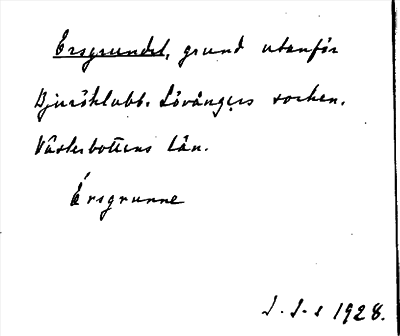 Ersgrundet, grund utanför
Bjuröklubb. Lövångers socken.
Västerbottens län.
Érsgrunne
J. S-e 1928.